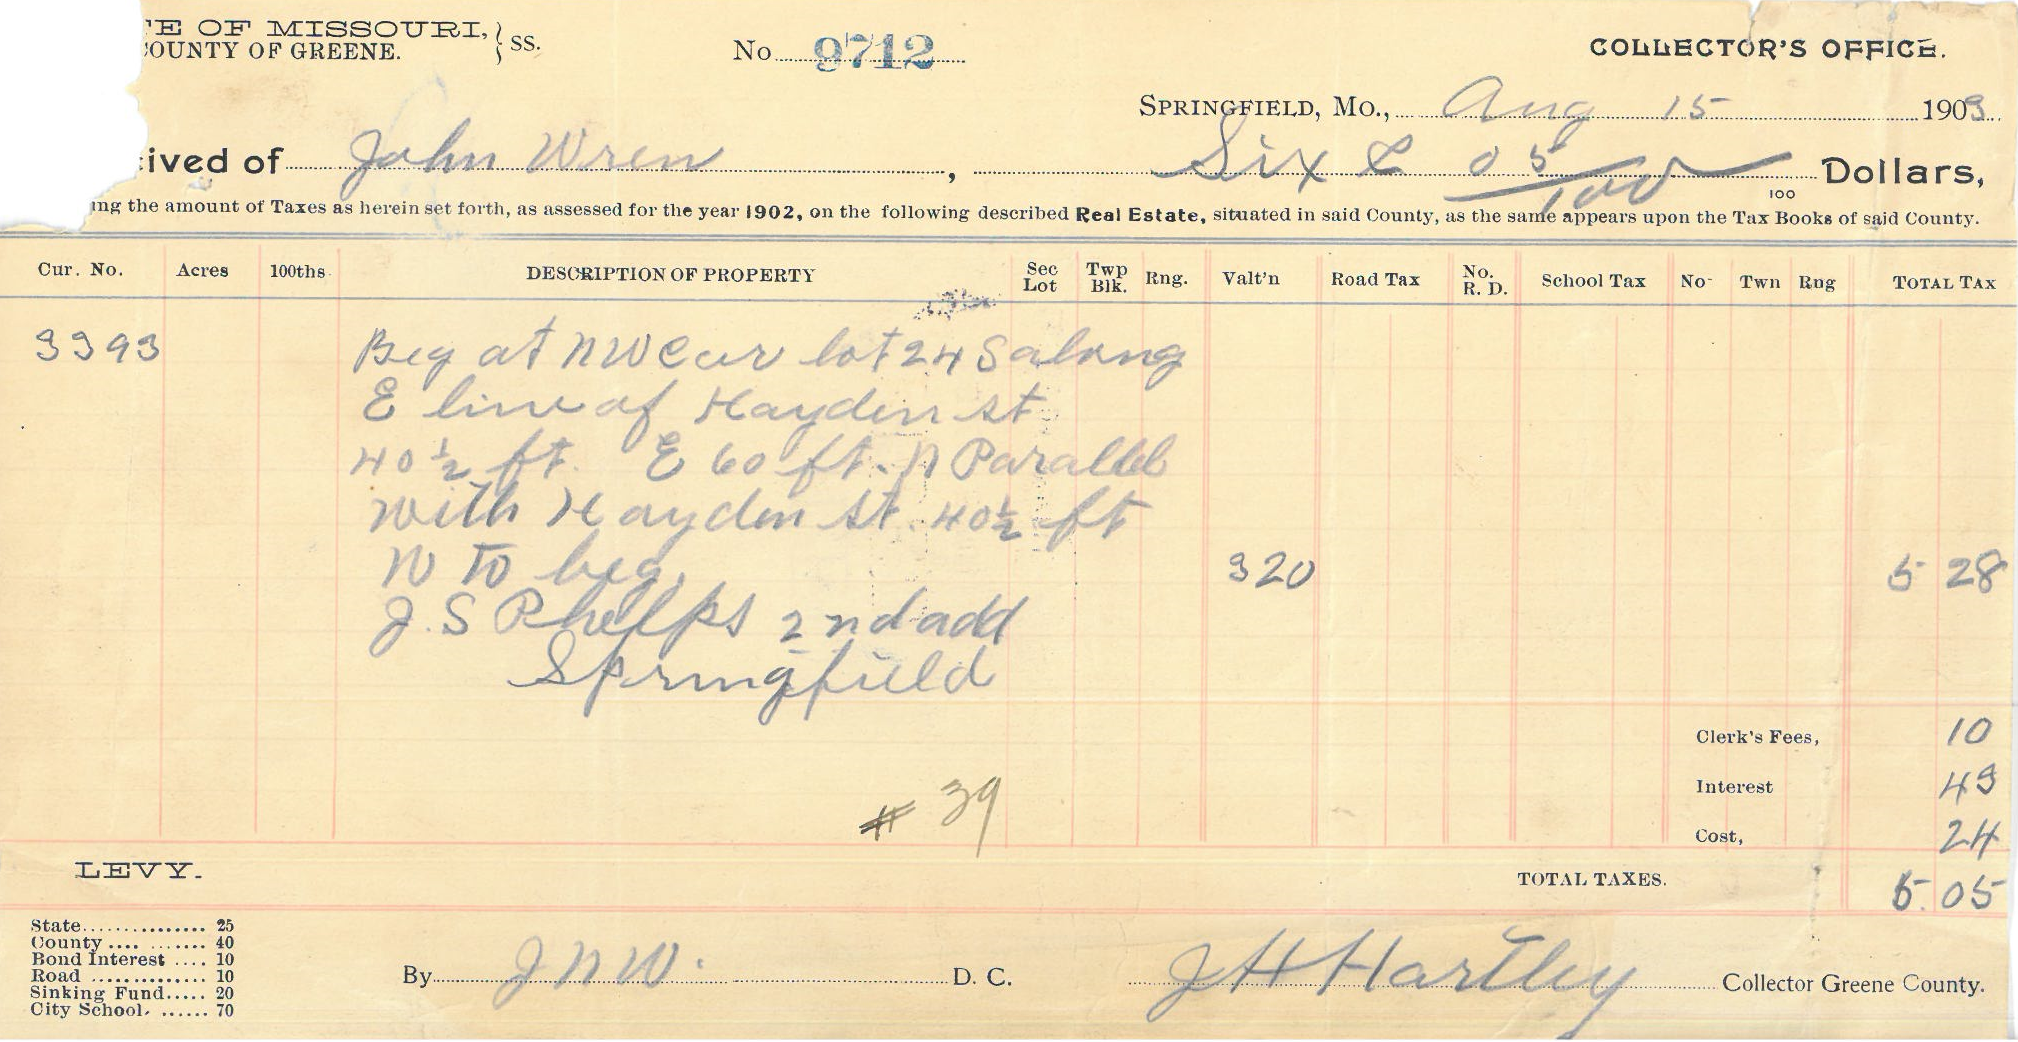 TE OF MISSOURI,
COUNTY OF GREENE. } SS.
No. 9712
COLLECTOR'S OFFICE.
SPRINGFIELD, MO., Aug 15 1903
ived of John Wren, Six & 05/100 Dollars,
100
ing the amount of Taxes as herein set forth, as assessed for the year 1902, on the following described Real Estate, situated in said County, as the same appears upon the Tax Books of said County.
Cur. No. Acres 100ths. DESCRIPTION OF PROPERTY Sec Lot Twp Blk. Rng. Valt'n Road Tax No. R. D. School Tax No- Twn Rng TOTAL TAX
3393 Beg at NW Cor lot 24 S along
E line of Hayden st
40 1/2 ft. E 60 ft. N Parallel
with Hayden st. 40 1/2 ft
N To beg. 320 5 28
J. S Phelps 2nd add
Springfield
Clerk's Fees, 10
Interest 43
# 39
Cost, 24
LEVY.
TOTAL TAXES. 6.05
State............... 25
County .... ....... 40
Bond Interest .... 10
Road .............. 10
Sinking Fund..... 20
City School. ...... 70
By J N W. D. C. J H Hartley Collector Greene County.